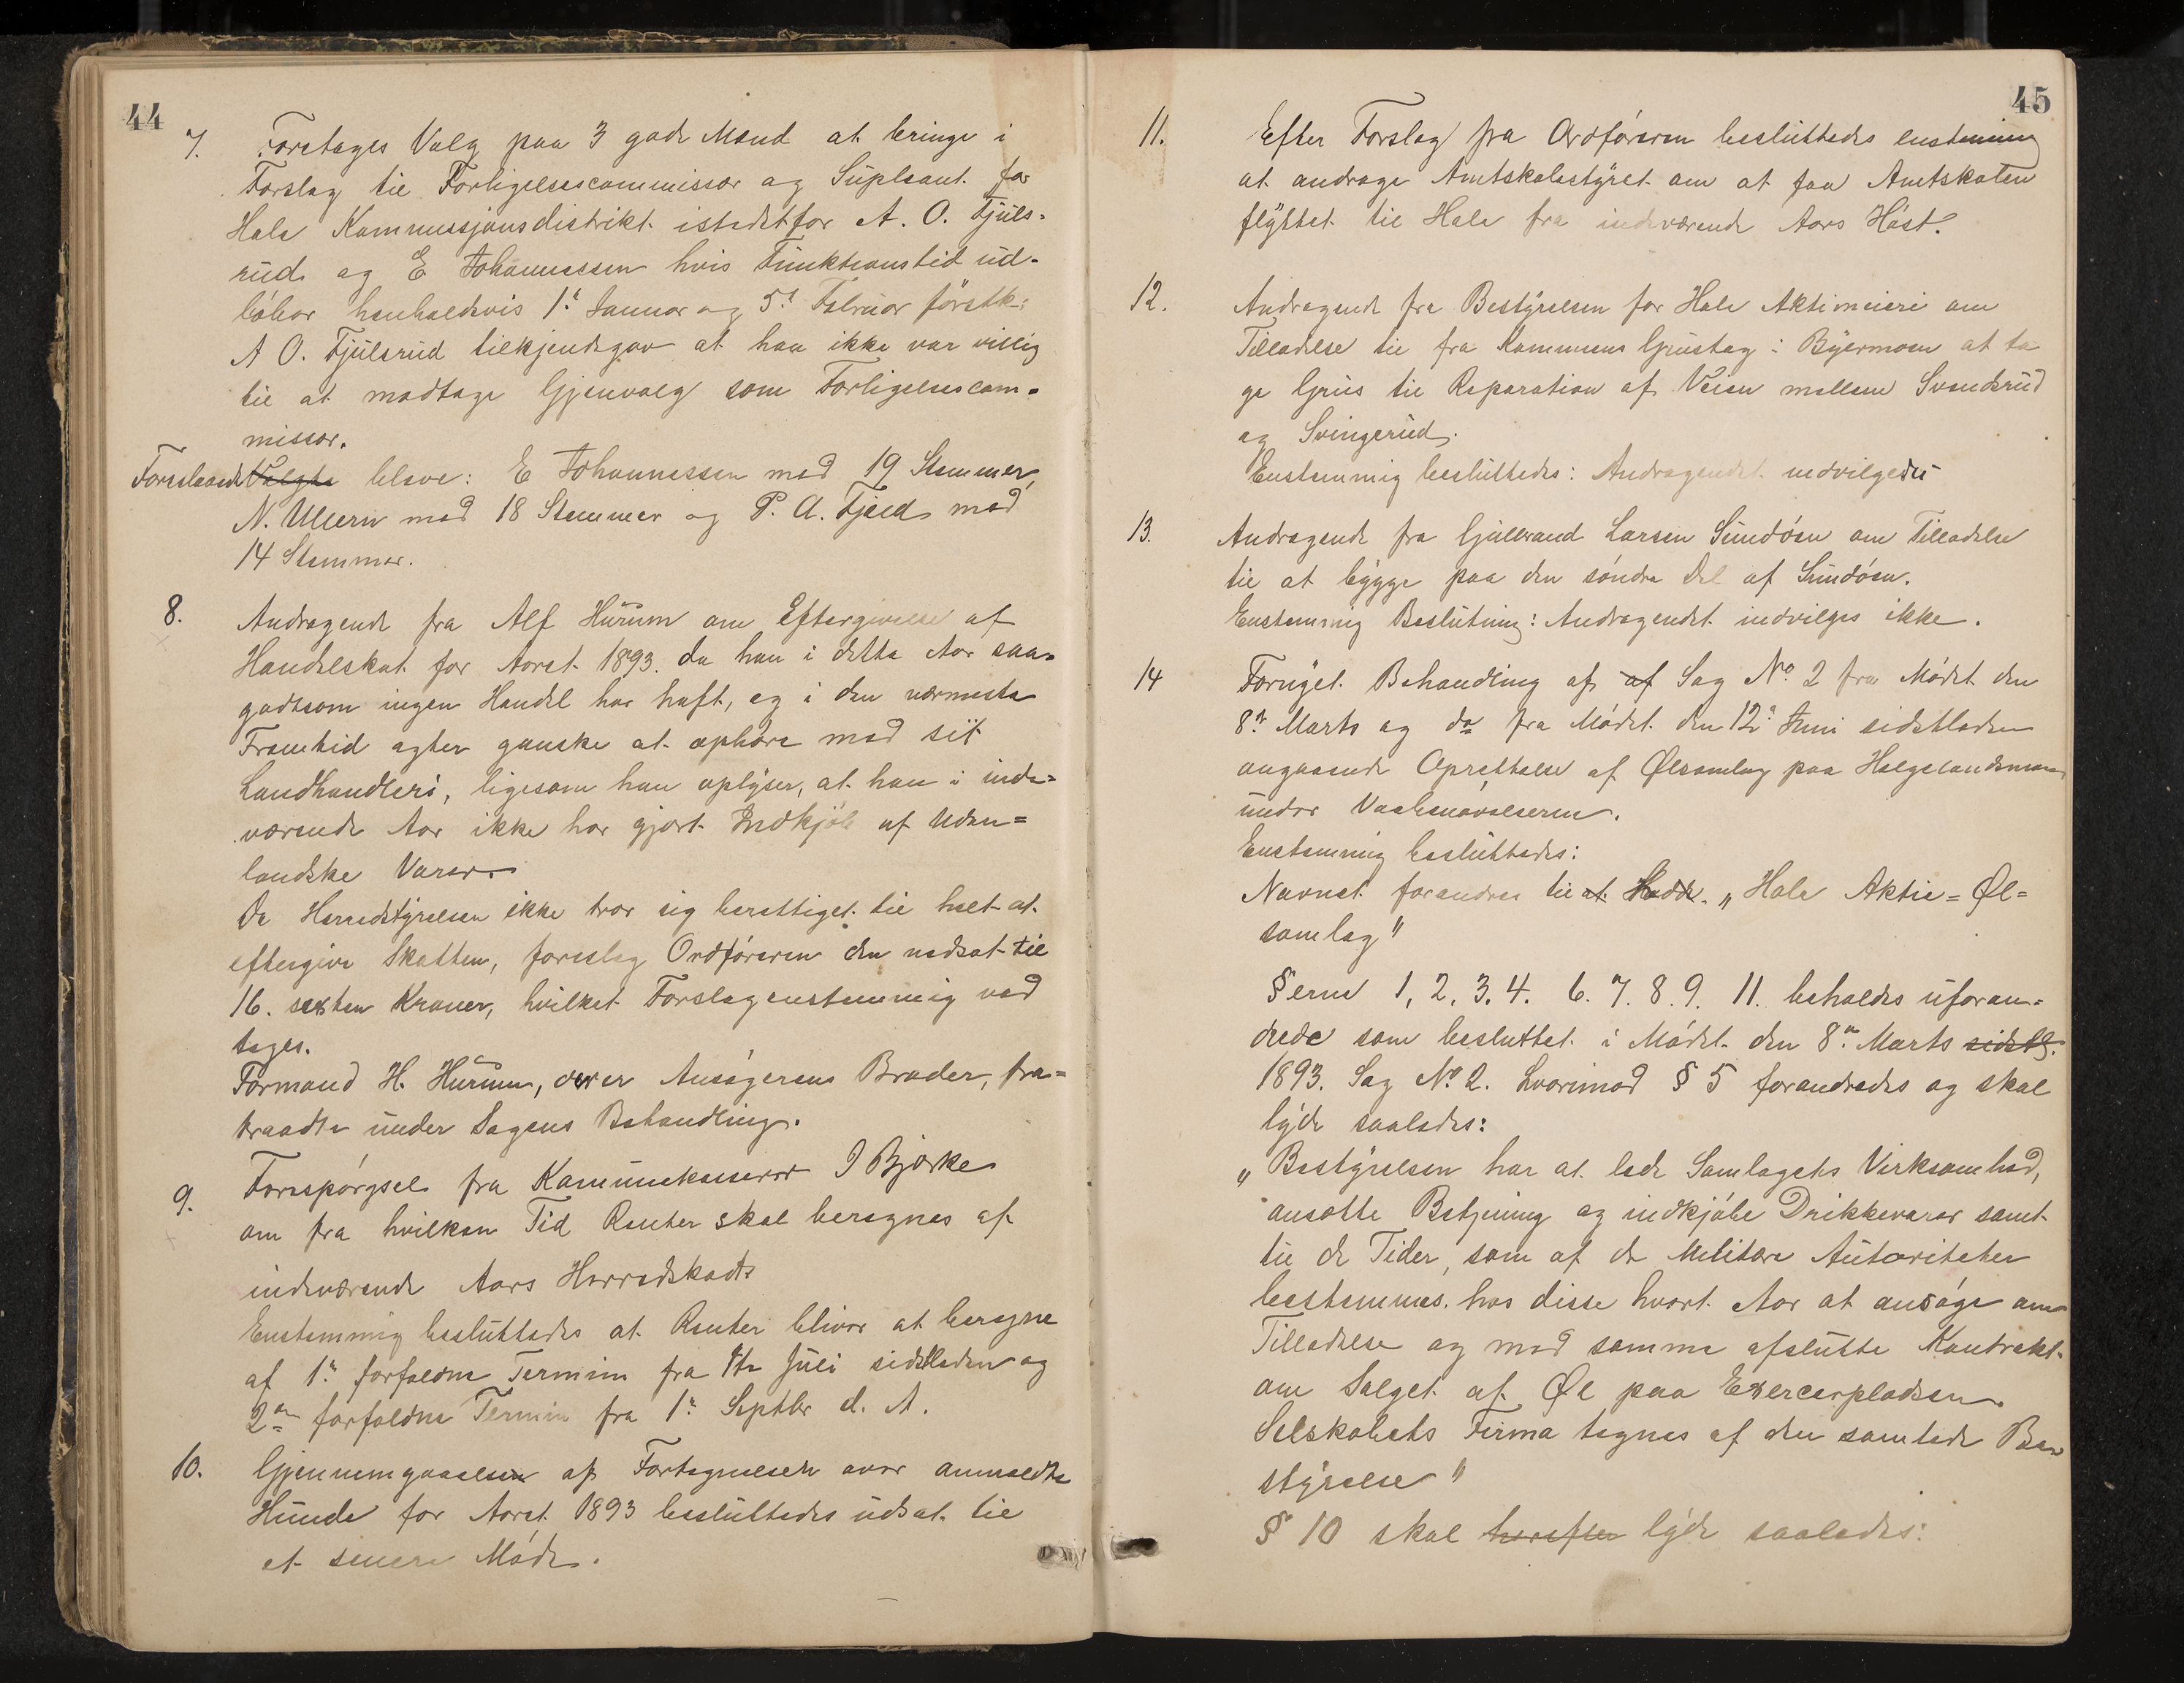 44
7. Foretages Valg paa 3 gode Mænd at bringe i
Forslag til Forligelsescommissær og Supleant for
Hole Kommissjonsdistrikt istedetfor A. O. Fjuls-
rud og E Johannessen hvis Funktionstid ud-
løber henholdsvis 1ste Januar og 5te Februar førstk:
A O. Fjulsrud tilkjendegav at han ikke var villig
til at modtage Gjenvalg som Forligelsescom-
missær.
Foreslaaede Valgte bleve: E Johannessen med 19 Stemmer,
N. Ullern med 18 Stemmer og P. A. Fjeld med
14 Stemmer.
8. Andragende fra Alf Hurum om Eftergivelse af
Handelskat for Aaret 1893. da han i dette Aar saa-
godtsom ingen Handel har haft, og i den nærmeste
Fremtid agter ganske at ophøre med sit
Landhandleri, ligesom han oplyser, at han i inde-
værende Aar ikke har gjort Indkjøb af Uden-
landske Varer.
Da Herredstyrelsen ikke tror sig berettiget til helt at
eftergive Skatten, foreslog Ordføreren den nedsat til
16. sexten Kroner, hvilket Forslag enstemmig ved
toges.
Formand H. Hurum, der er Ansøgerens Broder, fra-
traadte under Sagens Behandling.
9. Forespørgsel fra Kommunekasserer I Bjørke
om fra hvilken Tid Renter skal beregnes af
indeværende Aars Herredskat
Enstemmig besluttedes at Renter bliver at beregne
af 1ste forfaldne Termin fra 1ste Juli sidstleden og
2den forfaldne Termin fra 1ste Septbr d. A.
10. Gjennemgaaelsen af Fortegnelsen over anmeldte
Hunde for Aaret 1893 besluttedes udsat til
et senere Møde.
45
11. Efter Forslag fra Ordføreren besluttedes enstemmig
at andrage Amtskolestyret om at faa Amtskolen
flyttet til Hole fra indeværende Aars Høst.
12. Andragende fra Bestyrelsen for Hole Aktiemeieri om
Tilladelse til fra Kommunens Grustag i Byermoen at ta
ge Grus til Reparation af Veien mellem Svendsrud
og Svingerud.
Enstemmig besluttedes: Andragendet indvilgedes
13. Andragende fra Gulbrand Larsen Sundøen om Tilladelse
til at bygge paa den søndre Del af Sundøen.
Enstemmig Beslutning: Andragendet indvilges ikke.
14 Fornyet Behandling af af Sag No. 2 fra Mødet den
8de Marts og do fra Mødet den 12te Juni sidstleden
angaaende Oprettelse af Ølsamlag paa Helgelandsmoen
under Vaabenøvelserne.
Enstemmig besluttedes:
Navnet forandres til at Hedde. „Hole Aktie=Øl=
samlag"
§erne 1, 2, 3. 4. 6. 7. 8. 9. 11. beholdes uforan-
drede som besluttet i Mødet den 8de Marts sidstl.
1893. Sag No. 2. hvorimod § 5 forandredes og skal
lyde saaledes:
„Bestyrelsen har at lede Samlagets Virksomhed,
ansætte Betjening og indkjøbe Drikkevarer samt
til de Tider, som af de Militære Autoriteter
bestemmes. hos disse hvert Aar at ansøge om
Tilladelse og med samme afslutte Kontrakt
om Salget af Øl paa Exercerpladsen.
Selskabets Firma tegnes af den samlede Be-
styrelse"
§ 10 skal herefter lyde saaledes: